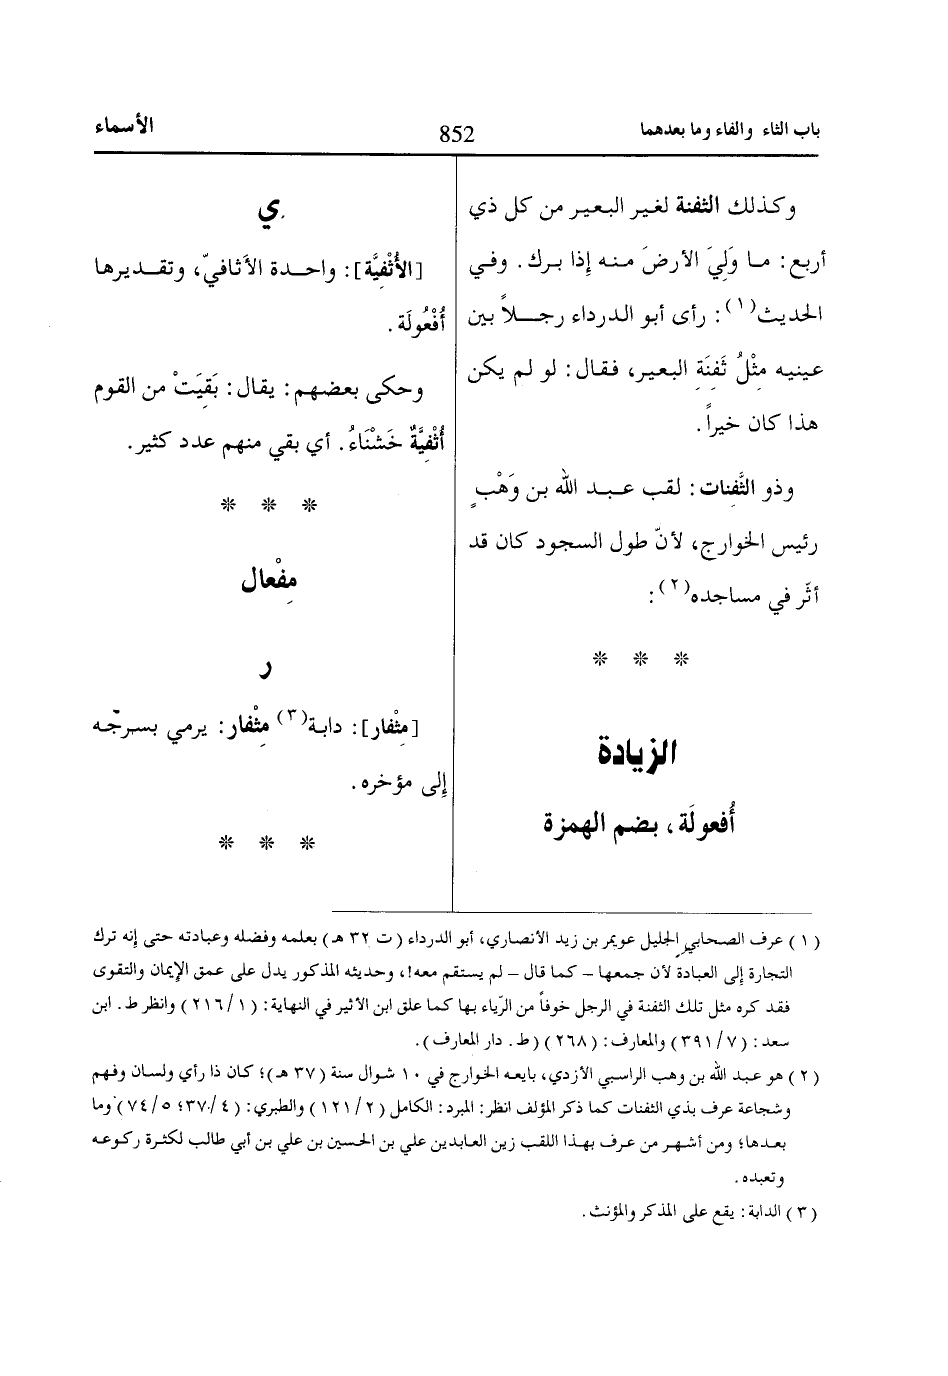 باب الثاء والفاء وما بعدهما
852
الأسماء
وكذلك الثفنة لغير البعير من كل ذي
أربع: ما وَلِيَ الأرضَ منه إذا برك. وفي
الحديث(١): رأى أبو الدرداء رجلاً بين
عينيه مِثْلُ ثَفِنَةِ البعير، فقال: لو لم يكن
هذا كان خيراً.
وذو الثَّفِنات: لقب عبد الله بن وَهْبٍ
رئيس الخوارج، لأنّ طول السجود كان قد
أثّر في مساجده(٢):
* * *
الزيادة
أُفعولَة، بضم الهمزة
ي
[الأُثْفِيَّة]: واحدة الأثافيّ، وتقديرها
أُفْعُولَة.
وحكى بعضهم: يقال: بَقِيَتْ من القوم
أُثْفِيَّةٌ خَشْنَاءُ. أي بقي منهم عدد كثير.
* * *
مِفْعال
ر
[مِثْفار]: دابة(٣) مِثْفار: يرمي بسرجه
إلى مؤخره.
* * *
(١) عرف الصحابي الجليل عويمر بن زيد الأنصاري، أبو الدرداء (ت ٣٢ هـ) بعلمه وفضله وعبادته حتى إنه ترك
التجارة إلى العبادة لأن جمعها – كما قال – لم يستقم معه!، وحديثه المذكور يدل على عمق الإيمان والتقوى
فقد كره مثل تلك الثفنة في الرجل خوفاً من الرّياء بها كما علق ابن الأثير في النهاية: (١/٢١٦) وانظر ط. ابن
سعد: (٧/٣٩١) والمعارف: (٢٦٨) (ط. دار المعارف).
(٢) هو عبد الله بن وهب الراسبي الأزدي، بايعه الخوارج في ١٠ شوال سنة (٣٧ هـ)؛ كان ذا رأي ولسان وفهم
وشجاعة عرف بذي الثفنات كما ذكر المؤلف انظر: المبرد: الكامل (٢/١٢١) والطبري: (٤/٣٧٠؛ ٥/٧٤) وما
بعدها؛ ومن أشهر من عرف بهذا اللقب زين العابدين علي بن الحسين بن علي بن أبي طالب لكثرة ركوعه
وتعبده.
(٣) الدابة: يقع على المذكر والمؤنث.